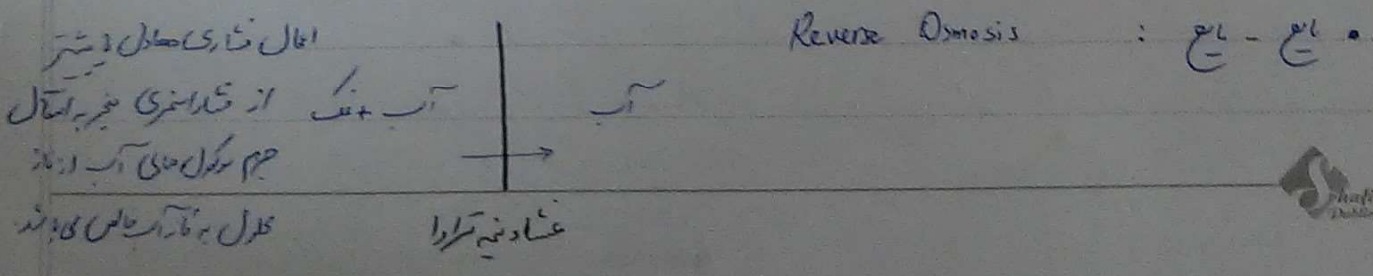 • مایع - مایع : Reverse Osmosis
آب
آب + نمک
غشاء نیمه تراوا
اعمال فشاری معادل یا بیشتر
از فشار اسمزی منجر به انتقال
جرم مولکول های آب از فاز
محلول به فاز آب خالص می باشد.
Shafie